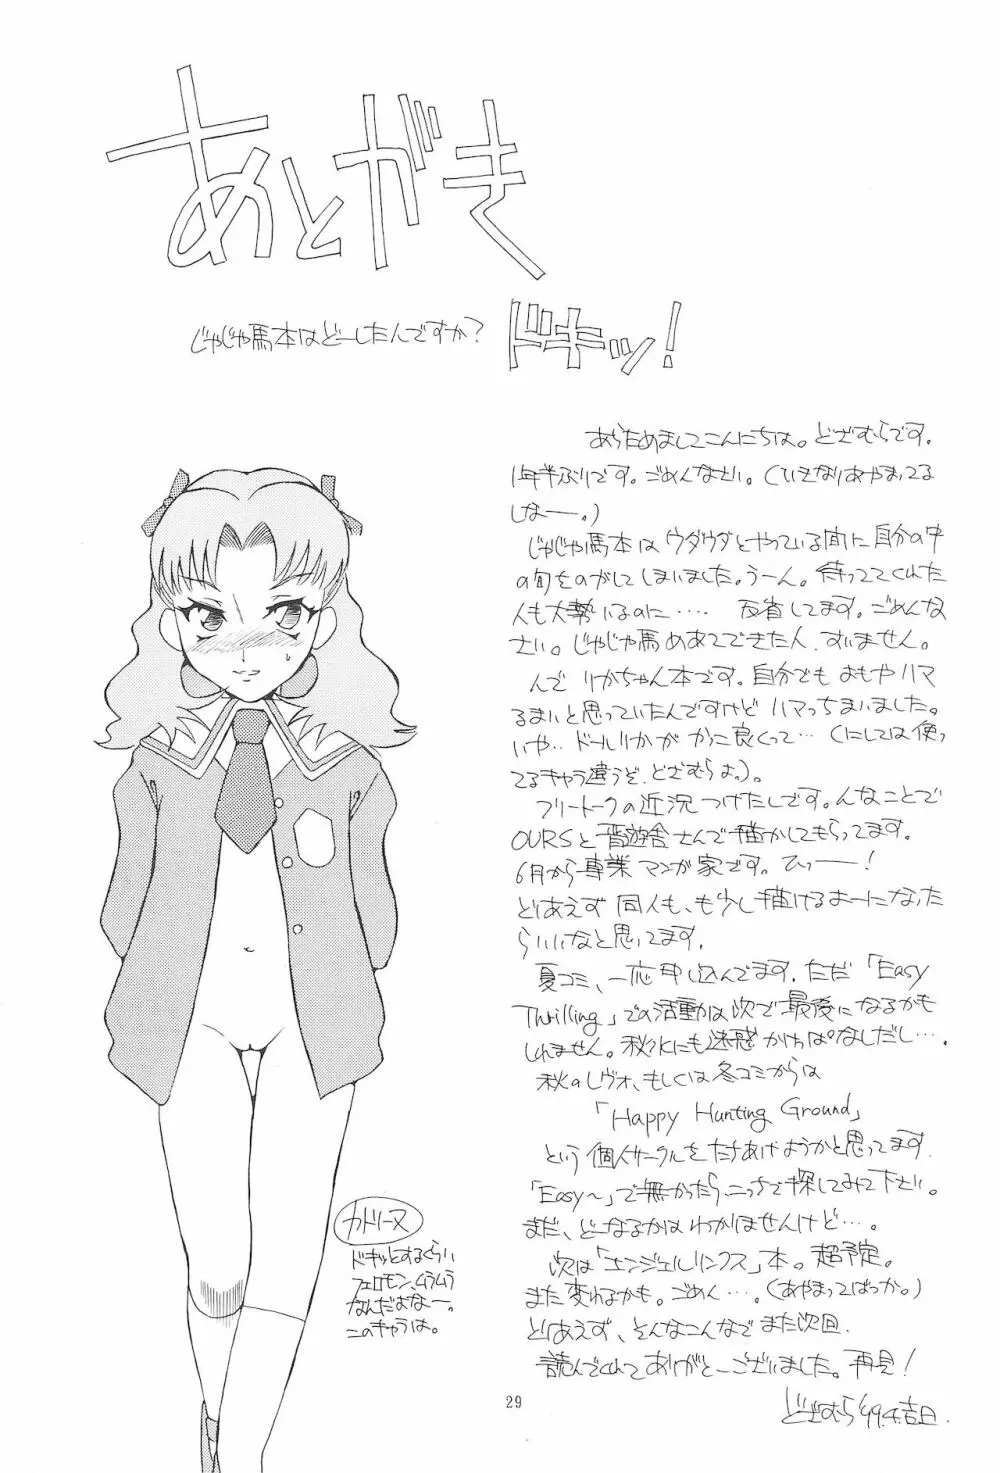 あとがき
じゃじゃ馬本はどーしたんですか?
ドキッ!
あらためましてこんにちは。どざむらです。
1年半ぶりです。ごめんなさい。(いきなりあやまってる
しなー。)
じゃじゃ馬本はウダウダとやっている間に自分の中
の旬をのがしてしまいました。うーん。待っててくれた
人も大勢いるのに‥‥ 反省してます。ごめんな
さい。じゃじゃ馬めあてできた人、すいません。
んで りかちゃん本です。自分でも おもやハマ
るまいと思っていたんですけど ハマっちまいました。
いや‥ドールりかが かっこ良くって…(にしては使っ
てるキャラ違うぞ、どざむらよ。)。
フリートークの近況つけたしです。んなことで
OURSと晋遊舎さんで描かしてもらってます。
6月から専業マンガ家です。ひぃーー!
とりあえず 同人も、も少し描けるよーになった
らいいなと思ってます。
夏コミ、一応申し込んでます。ただ「Easy
Thrilling」での活動は次で最後になるかも
しれません。秋水にも迷惑かけっぱなしだし…。
秋のレヴォ、もしくは冬コミからは
「Happy Hunting Ground」
という個人サークルをたちあげようかと思ってます。
「Easy〜」で無かったら、こっちで探してみて下さい。
まだ、どーなるかはわかりませんけど…。
次は「エンジェルリンクス」本。超予定。
また変わるかも。ごめん…。(あやまってばっか。)
とりあえず、そんなこんなでまた次回。
読んでくれてありがとーございました。再見!
どざむら '99.4.吉日.
カトリーヌ
ドキッとするぐらい
フェロモン、ムラムラ
なんだよなー。
このキャラは。
29